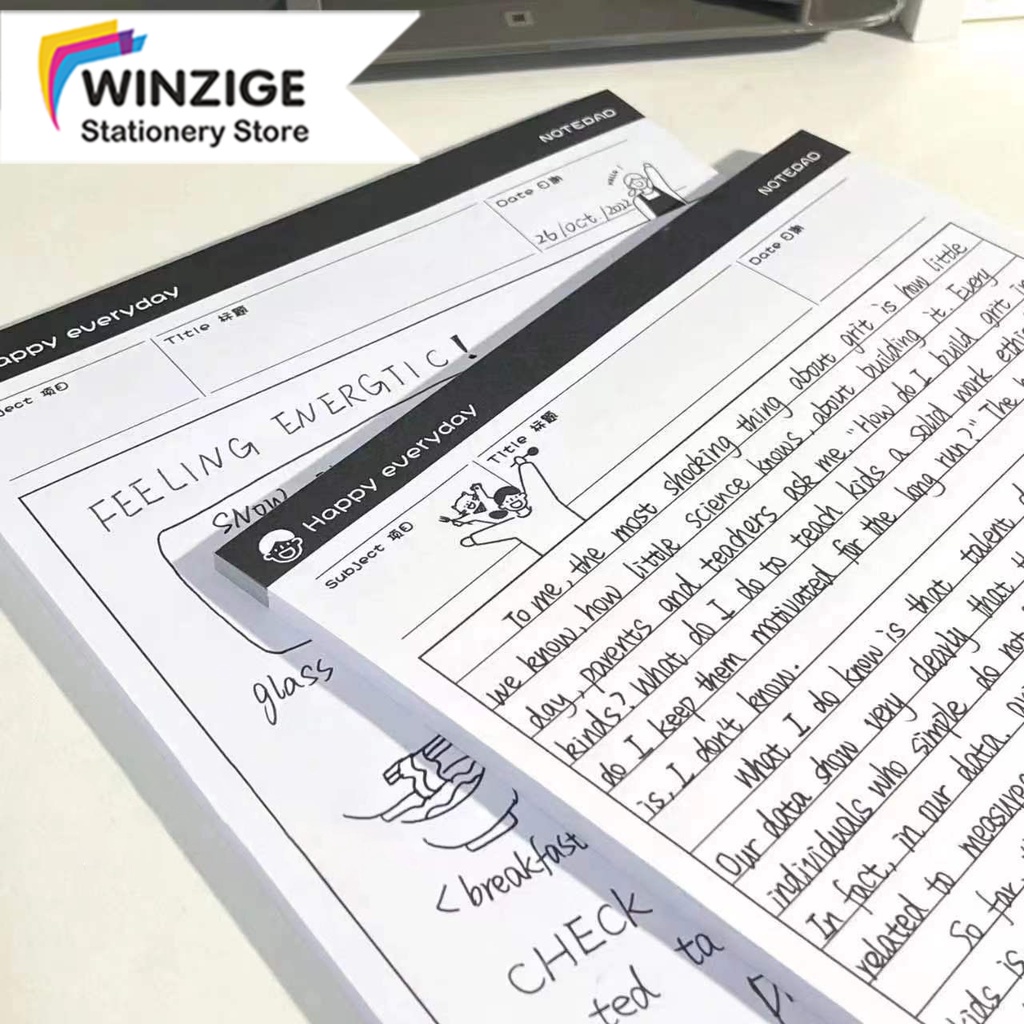 WINZIGE
Stationery Store
NOTEPAD
Happy everyday
Subject 项目
Title 标题
Date 日期
26/Oct/2022
HELLO!
FEELING ENERGTIC!
SNOW
glass
<breakfast
CHECK
ted
ta
D.
NOTEPAD
Happy everyday
Subject 项目
Title 标题
Date 日期
To me, the most shocking thing about grit is how little
we know, how little science knows, about building it. Every
day, parents and teachers ask me. "How do I build grit in
kinds? What do I do to teach kids a solid work ethic
do I keep them motivated for the long run?" The
is, I don't know.
What I do know is that talent
Our data show very clearly that
individuals who simple do not
In fact, in our data,
related to measures
So far,
kids is